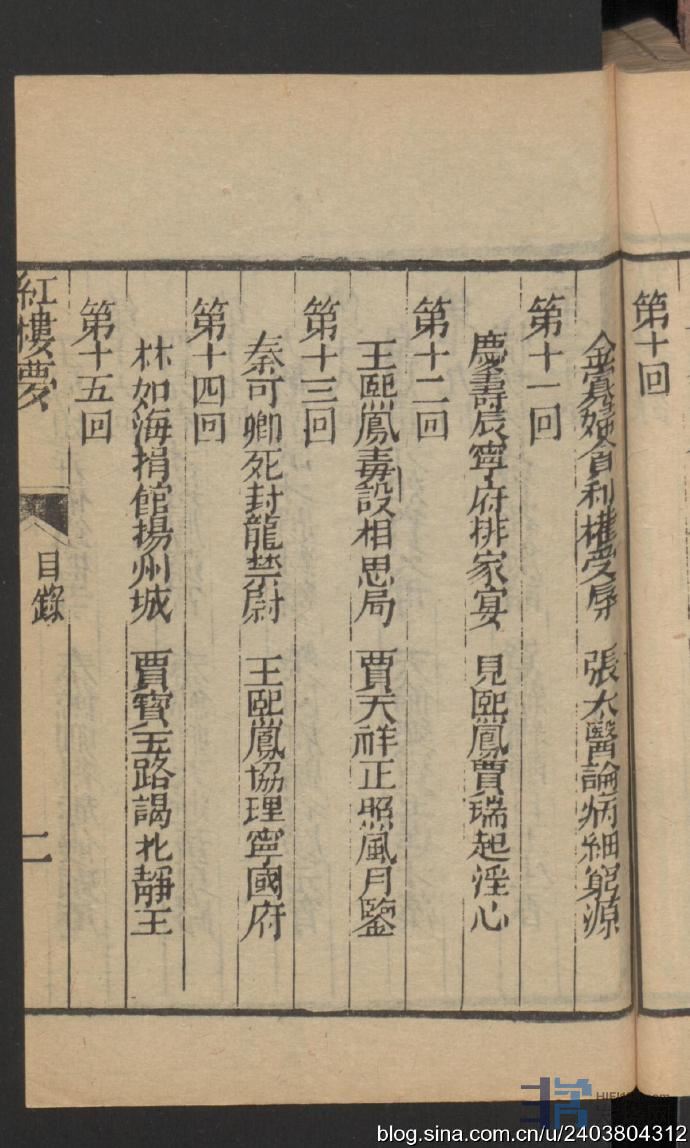 第十回
金寡婦貪利權受辱 張太醫論病細窮源
第十一回
慶壽辰寧府排家宴 見熙鳳賈瑞起淫心
第十二回
王熙鳳毒設相思局 賈天祥正照風月鑒
第十三回
秦可卿死封龍禁尉 王熙鳳協理寧國府
第十四回
林如海捐館揚州城 賈寶玉路謁北靜王
第十五回
紅樓夢 目錄 二
blog.sina.com.cn/u/2403804312